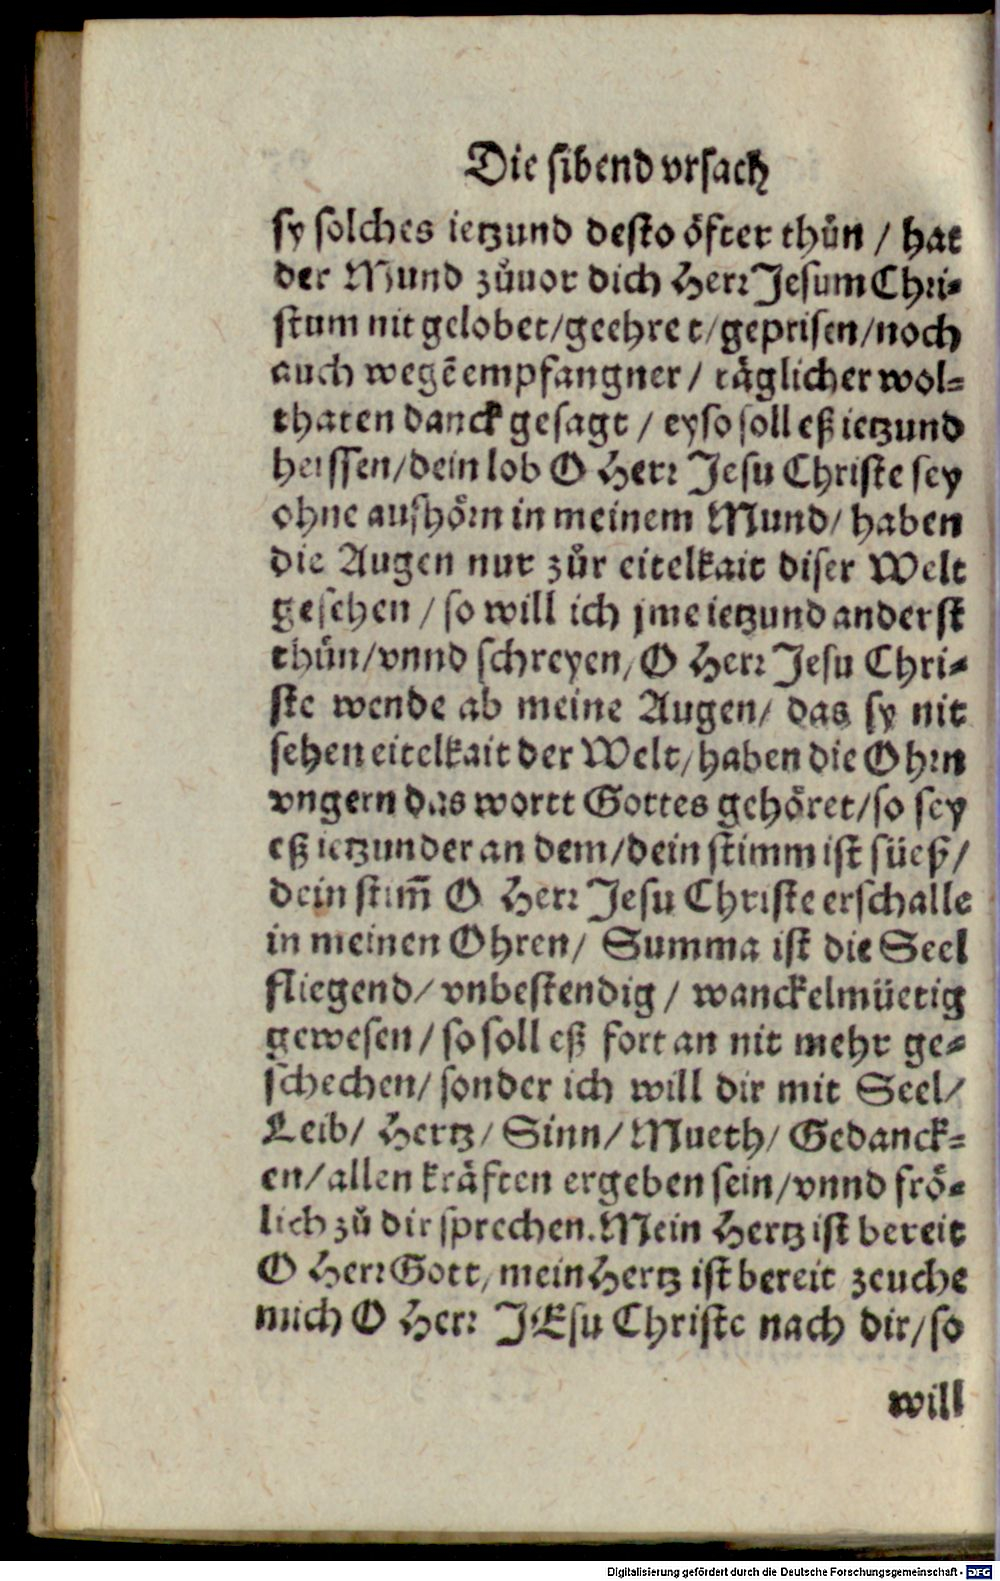 Die sibend vrsach
sy solches ietzund desto öfter thůn / hat
der Mund zůuor dich Herr Jesum Chri⸗
stum nit gelobet/geehret/geprisen/noch
auch wegē empfangner / täglicher wol⸗
thaten danck gesagt / ey so soll eß ietzund
heissen/dein lob O Herr Jesu Christe sey
ohne aufhörn in meinem Mund/ haben
die Augen nur zůr eitelkait diser Welt
gesehen / so will ich jme ietzund anderst
thůn/vnnd schreyen/ O Herr Jesu Chri⸗
ste wende ab meine Augen/ das sy nit
sehen eitelkait der Welt/ haben die Ohrn
vngern das wortt Gottes gehöret/so sey
eß ietzunder an dem/dein stimm ist süeß/
dein stim̅ O Herr Jesu Christe erschalle
in meinen Ohren/ Summa ist die Seel
fliegend/ vnbestendig / wanckelmüetig
gewesen / so soll eß fort an nit mehr ge⸗
schechen/ sonder ich will dir mit Seel/
Leib/ Hertz/ Sinn/ Mueth/ Gedanck⸗
en/allen kräften ergeben sein/vnnd frö⸗
lich zů dir sprechen. Mein Hertz ist bereit
O Herr Gott, mein Hertz ist bereit zeuche
mich O Herr JEsu Christe nach dir/so
will
Digitalisierung gefördert durch die Deutsche Forschungsgemeinschaft - DFG